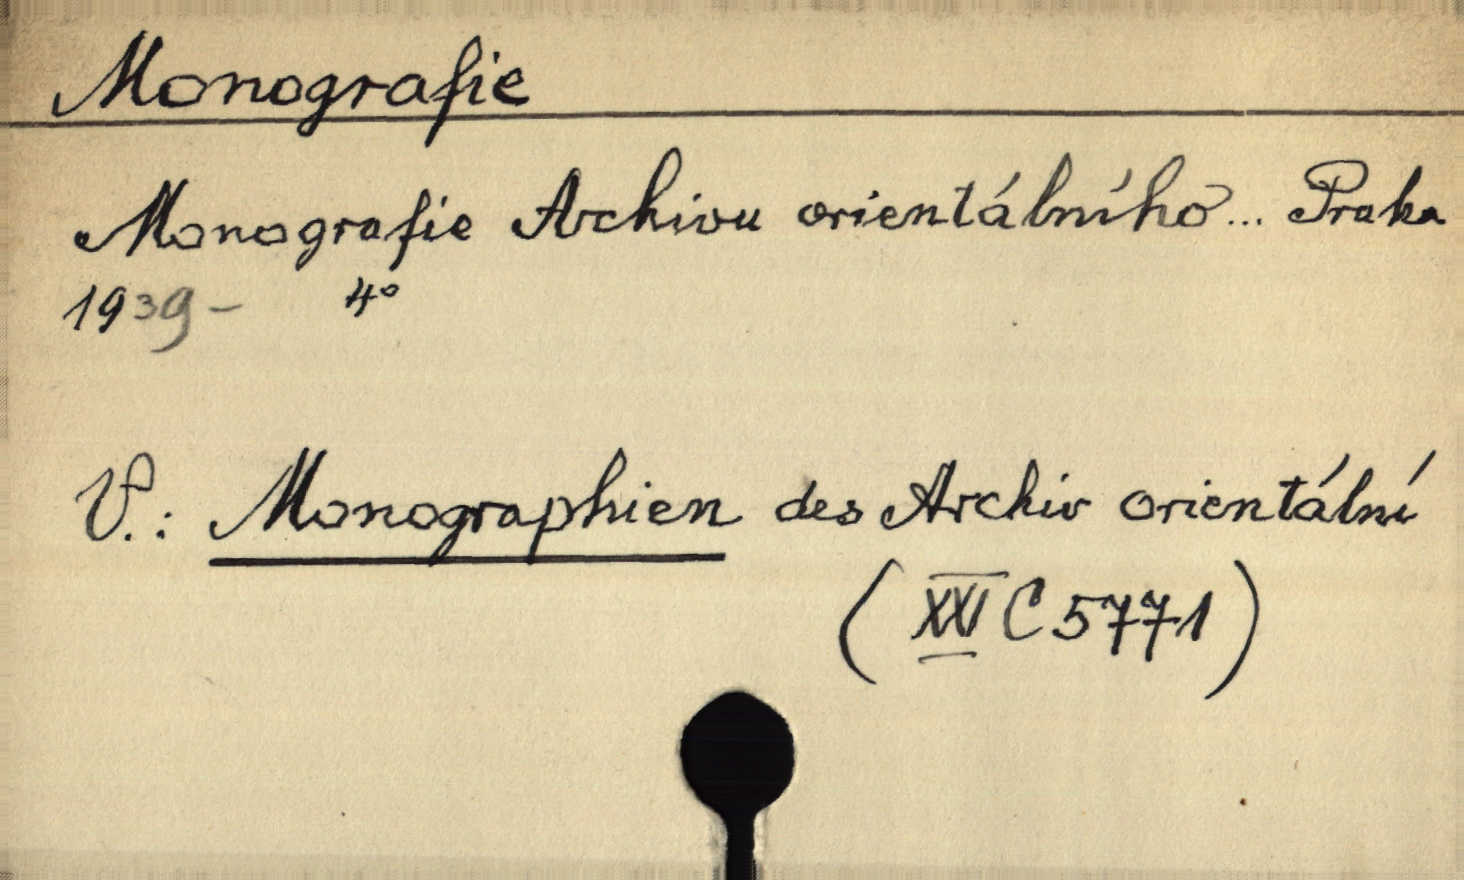 Monografie
Monografie Archivu orientálního... Praha
1939- 4°
V.: Monographien des Archiv orientální
(XVI C 5771)